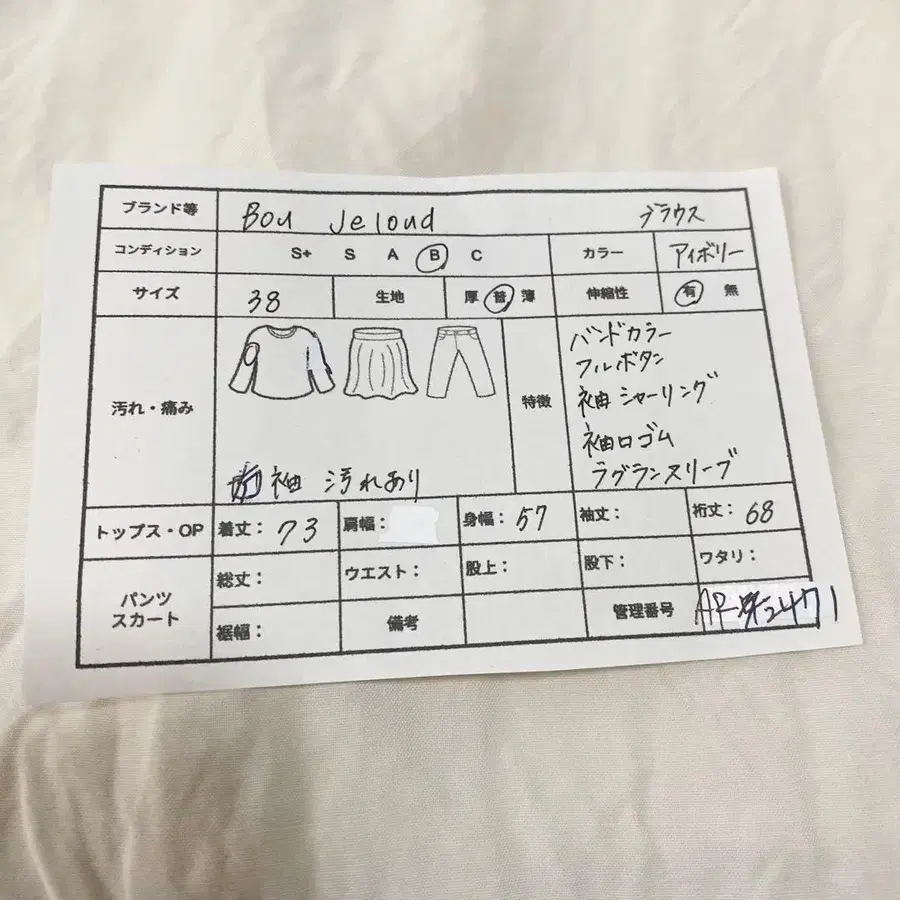 ブランド等 Bou Jeloud ブラウス
コンディション S+ S A B C カラー アイボリー
サイズ 38 生地 厚 普 薄 伸縮性 有 無
汚れ・痛み
袖 汚れあり
特徴
バンドカラー
フルボタン
袖シャーリング
袖口ゴム
ラグランスリーブ
トップス・OP 着丈：73 肩幅： 身幅：57 袖丈： 裄丈：68
パンツ
スカート
総丈： ウエスト： 股上： 股下： ワタリ：
裾幅： 備考 管理番号